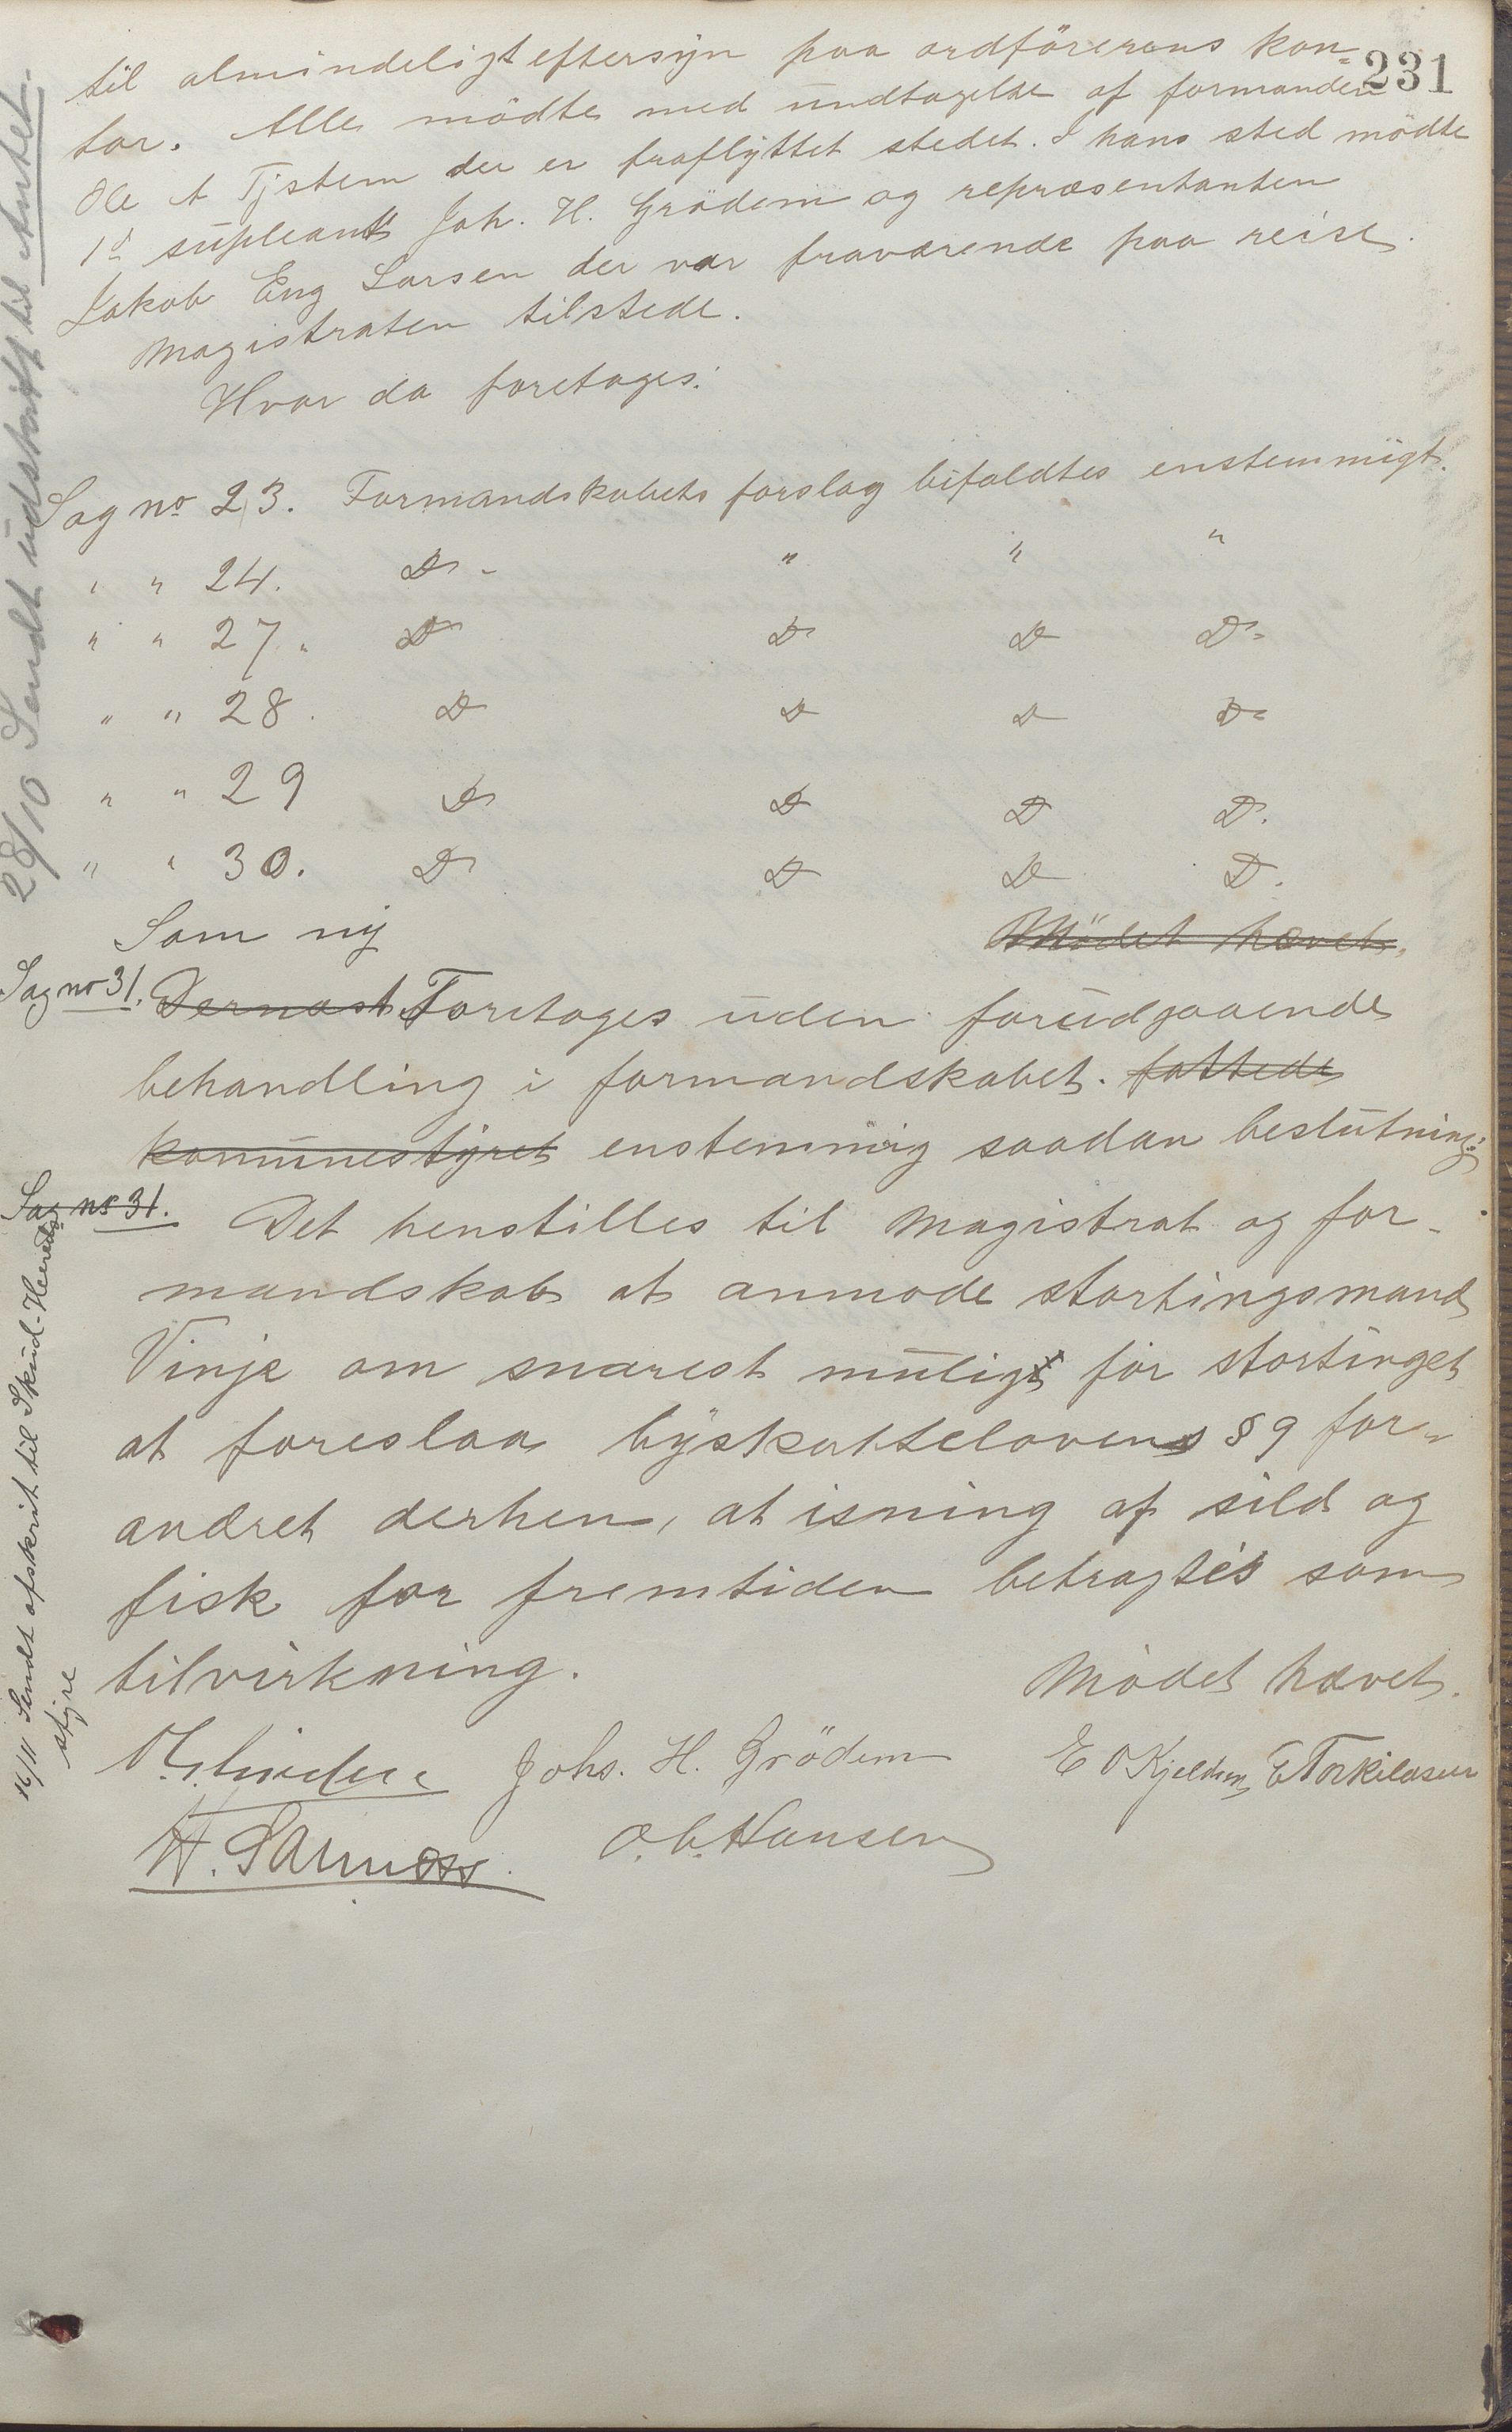 231
til almindeligt eftersyn paa ordförerens kon-
tor. Alle mödte med undtagelse af formanden
Ole A Tjstem der er fraflyttet stedet. I hans sted mödte
1ste supleant Joh. H. Grödem og repræsentanten
Jakob Eng Larsen der var fraværende paa reise.
Magistraten tilstede.
Hvor da foretoges:
Sag no 23. Formandskabets forslag bifaldtes enstemmigt.
" " 24. Do - " " "
" " 27. Do Do Do Do
" " 28. Do Do Do Do
" " 29 Do Do Do Do.
" " 30. Do Do Do Do.
Som ny Mödet hævet.
Sag no 31. Dernæst Foretoges uden forudgaaende
behandling i formandskabet. fattede
kommunestyret enstemmig saadan beslutning:
Sag no 31. Det henstilles til Magistrat og for-
mandskab at anmode stortingsmand
Vinje om snarest muligt for stortinget
at foreslaa byskattelovens § 9 for-
andret derhen, at isning af sild og
fisk for fremtiden betragtes som
tilvirkning.
Mödet hævet.
Johs. H. Grödem E O Kjeldsen E Torkildsen
O. C. Hansen
28/10 Sendt udskrift til Amtet.
16/11 Sendt afskrit til Skud. Herreds-
styre